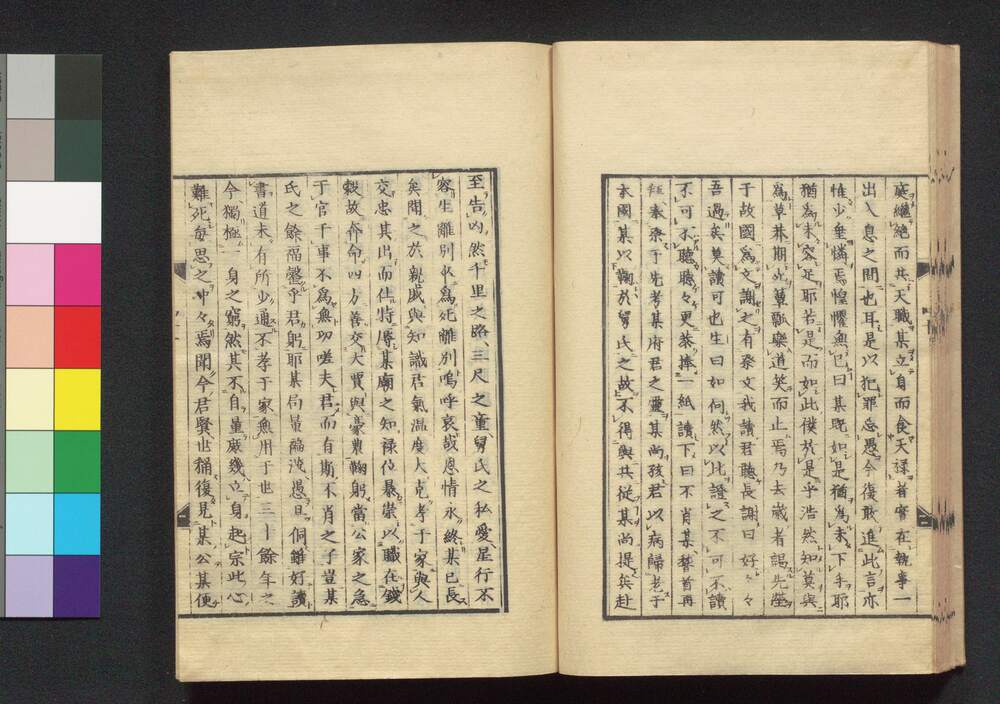 庭繼絶而共天職某立身而食天祿者實在執事一
出入息之間也耳是以犯罪忘愚今復敢進此言亦
惟少垂憐焉惶懼無已曰某既如是猶為未下手耶
猶為未容足耶若是而如此僕於是乎浩然知莫與
為草莽期必簞瓢樂道笑而止焉乃去歲者謁先塋
于故國為文謝之有祭文我讀君聽長謝曰好々々
吾過矣莫讀可也生曰如何然以比證之不可不讀
不可不聽聽々更恭捧一紙讀下曰不肖某稽首再
拜奉祭于先考某府君之靈某尚孩君以病歸老于
本國某以鞠於舅氏之故不得與共從某尚提兵赴
至告凶然千里之路三尺之童舅氏之私愛是行不
容生離別以為死離別嗚呼哀哉恩情永終某已長
矣聞之於親戚與知識君氣温度大克孝于家與人
交忠其出而仕特辱某廟之知禄位暴崇以職在錢
穀故奔命四方善交大賈與豪農鞠躬當公家之急
于官千事不為無功嗟夫君而有斯不肖之子豈某
氏之餘福鏧乎君躬耶某局量褊淺愚且侗雖好讀
書道未有所少通不孝于家無用于世三十餘年之
今獨極一身之窮然其不自量厥幾立身起宗此心
難死每思之中々焉聞今君賢也稱復見某公某便